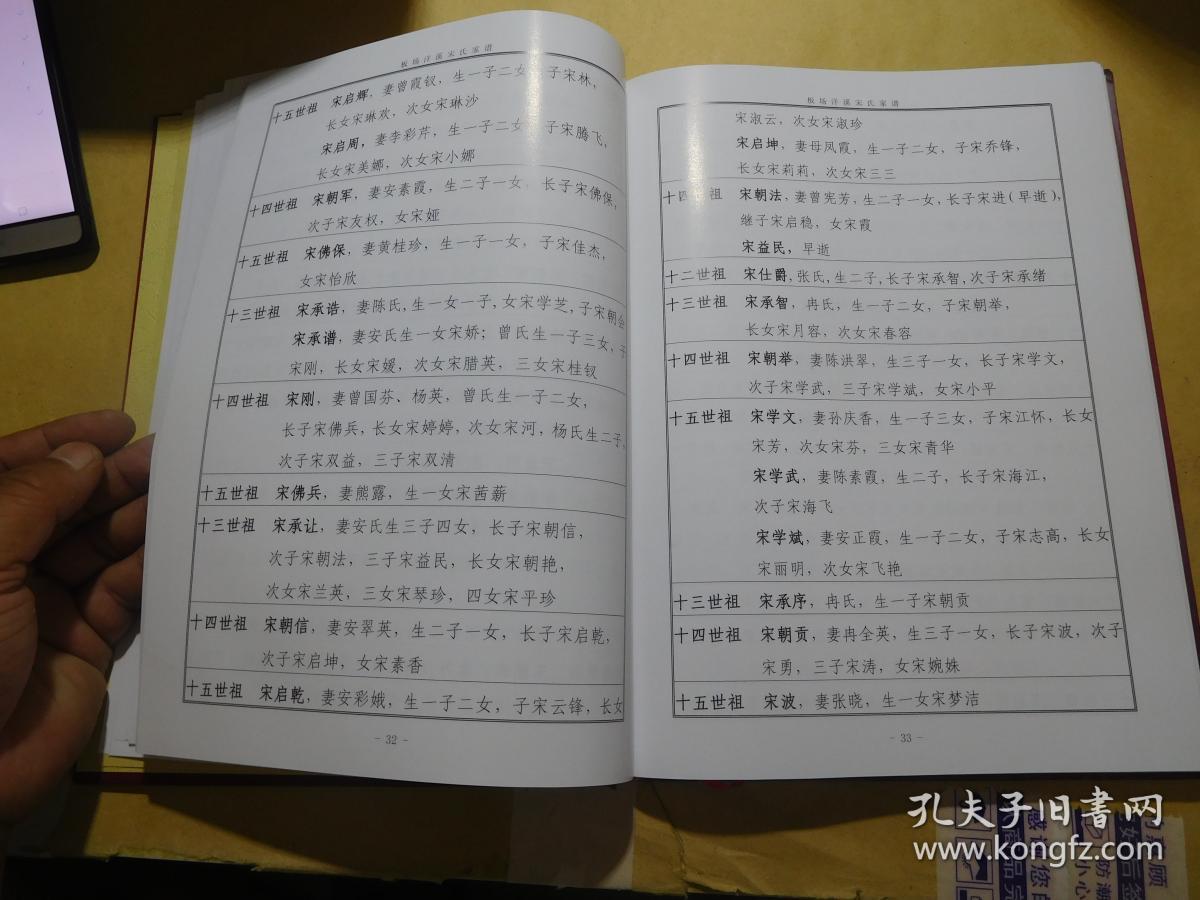 板场洋溪宋氏家谱
十五世祖 宋启辉，妻曾霞钗，生一子二女，子宋林，
长女宋琳欢，次女宋琳沙
宋启周，妻李彩芹，生一子二女，子宋腾飞，
长女宋美娜，次女宋小娜
十四世祖 宋朝军，妻安素霞，生二子一女，长子宋佛保，
次子宋友权，女宋娅
十五世祖 宋佛保，妻黄桂珍，生一子一女，子宋佳杰，
女宋怡欣
十三世祖 宋承诰，妻陈氏，生一女一子，女宋学芝，子宋朝会
宋承谱，妻安氏生一女宋娇；曾氏生一子三女，子
宋刚，长女宋媛，次女宋腊英，三女宋桂钗
十四世祖 宋刚，妻曾国芬、杨英，曾氏生一子二女，
长子宋佛兵，长女宋婷婷，次女宋河，杨氏生二子，
次子宋双益，三子宋双清
十五世祖 宋佛兵，妻熊露，生一女宋茜薪
十三世祖 宋承让，妻安氏生三子四女，长子宋朝信，
次子宋朝法，三子宋益民，长女宋朝艳，
次女宋兰英，三女宋琴珍，四女宋平珍
十四世祖 宋朝信，妻安翠英，生二子一女，长子宋启乾，
次子宋启坤，女宋素香
十五世祖 宋启乾，妻安彩娥，生一子二女，子宋云锋，长女
- 32 -
板场洋溪宋氏家谱
宋淑云，次女宋淑珍
宋启坤，妻母凤霞，生一子二女，子宋乔锋，
长女宋莉莉，次女宋三三
十四世祖 宋朝法，妻曾宪芳，生二子一女，长子宋进（早逝），
继子宋启稳，女宋霞
宋益民，早逝
十二世祖 宋仕爵，张氏，生二子，长子宋承智，次子宋承绪
十三世祖 宋承智，冉氏，生一子二女，子宋朝举，
长女宋月容，次女宋春容
十四世祖 宋朝举，妻陈洪翠，生三子一女，长子宋学文，
次子宋学武，三子宋学斌，女宋小平
十五世祖 宋学文，妻孙庆香，生一子三女，子宋江怀，长女
宋芳，次女宋芬，三女宋青华
宋学武，妻陈素霞，生二子，长子宋海江，
次子宋海飞
宋学斌，妻安正霞，生一子二女，子宋志高，长女
宋丽明，次女宋飞艳
十三世祖 宋承序，冉氏，生一子宋朝贡
十四世祖 宋朝贡，妻冉全英，生三子一女，长子宋波，次子
宋勇，三子宋涛，女宋婉姝
十五世祖 宋波，妻张晓，生一女宋梦洁
- 33 -
孔夫子旧书网
www.kongfz.com